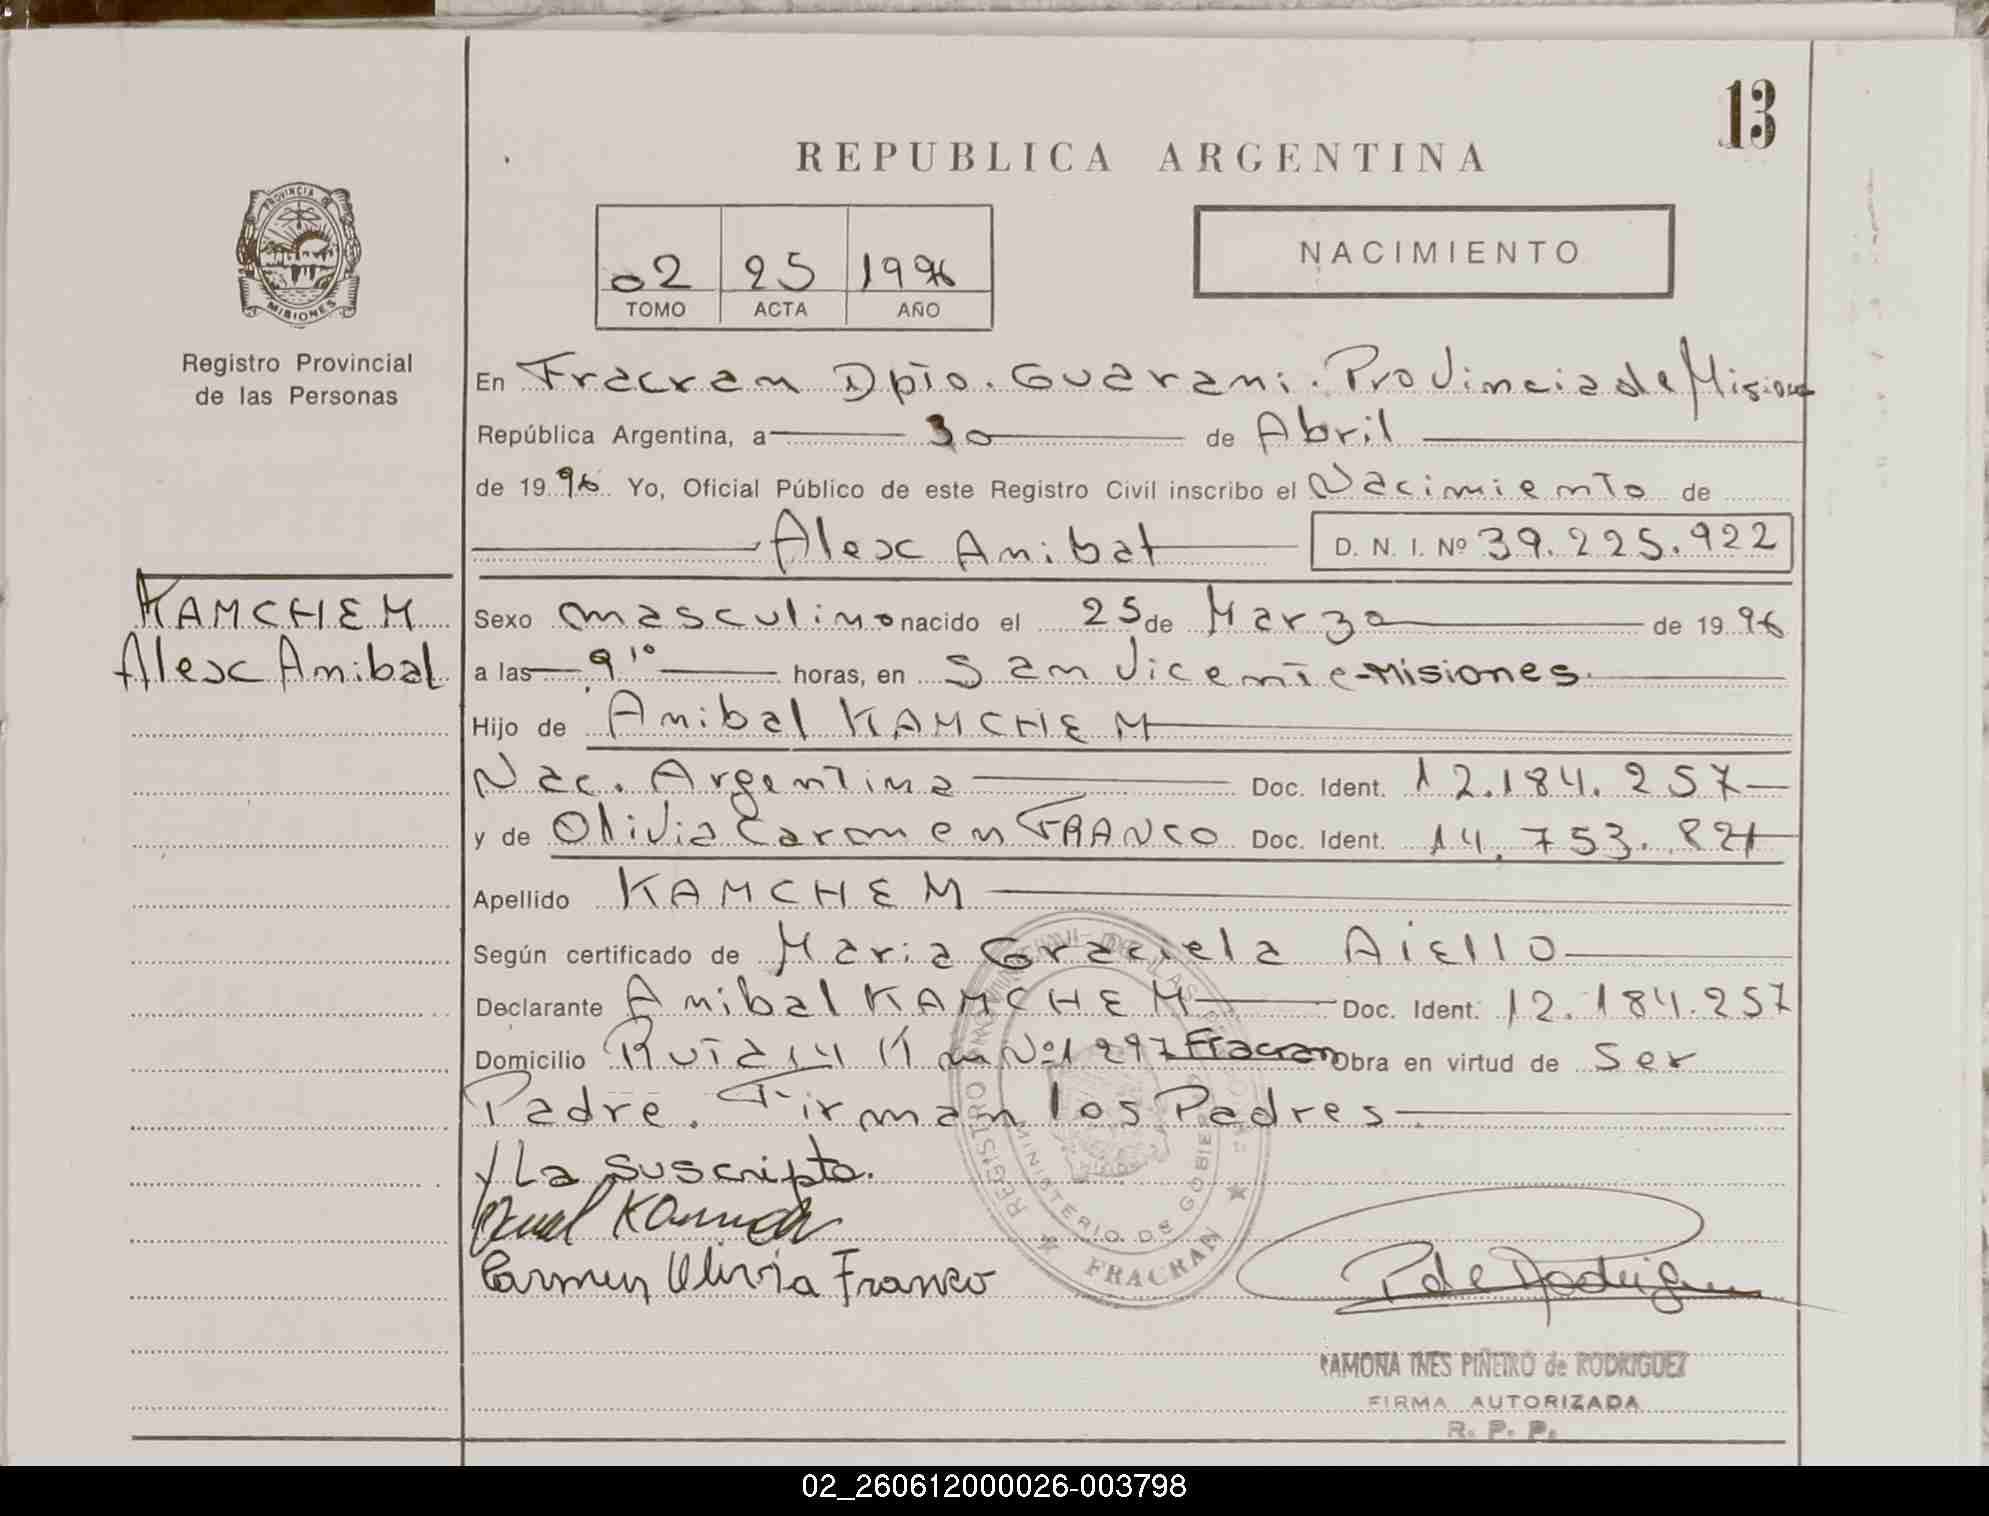 13
REPUBLICA ARGENTINA
PROVINCIA DE
MISIONES
Registro Provincial
de las Personas
02 25 1996
TOMO ACTA AÑO
NACIMIENTO
En Fracran Dpto. Guarani. Provincia de Misiones
República Argentina, a 30 de Abril
de 1996 Yo, Oficial Público de este Registro Civil inscribo el Nacimiento de
Alex Anibal D. N. I. Nº 39.225.922
KAMCHEM
Alex Anibal
Sexo masculino nacido el 25 de Marzo de 1996
a las 9 10 horas, en San Vicente-Misiones.
Hijo de Anibal KAMCHEM
Nac. Argentina Doc. Ident. 12.184.257
y de Olivia Carmen FRANCO Doc. Ident. 14.753.821
Apellido KAMCHEM
Según certificado de Maria Graciela Aiello
Declarante Anibal KAMCHEM Doc. Ident. 12.184.257
Domicilio Ruta 14 Km Nº 1297 Fracran Obra en virtud de Ser
Padre. Firman los Padres
y La suscripta.
Carmen Olivia Franco
P de Rodriguez
REGISTRO PROVINCIAL DE LAS PERSONAS
MINISTERIO DE GOBIERNO
FRACRAN
RAMONA INES PIÑEIRO de RODRIGUEZ
FIRMA AUTORIZADA
R. P. P.
02_260612000026-003798